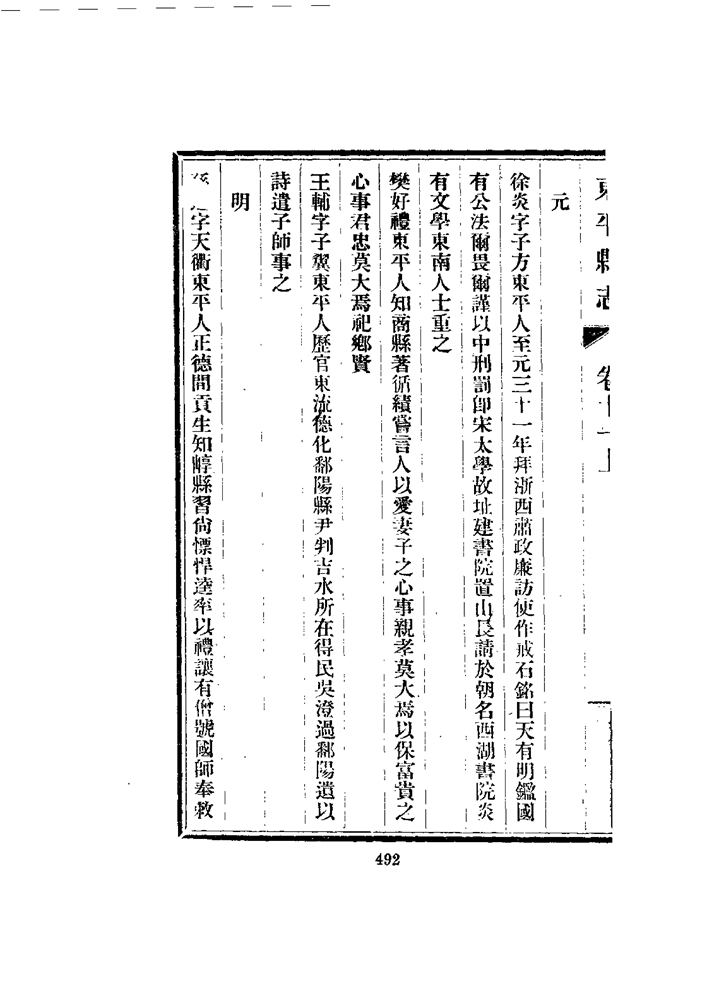 東平縣志 卷十一上
元
徐炎字子方東平人至元三十一年拜浙西肅政廉訪使作戒石銘曰天有明鑑國
有公法爾畏爾謹以中刑罰卽宋太學故址建書院置山長請於朝名西湖書院炎
有文學東南人士重之
樊好禮東平人知商縣著循績嘗言人以愛妻子之心事親孝莫大焉以保富貴之
心事君忠莫大焉祀鄉賢
王輔字子翼東平人歷官東流德化鄱陽縣尹判吉水所在得民吳澄過鄱陽遺以
詩遣子師事之
明
字天衢東平人正德間貢生知崞縣習尙慓悍逵率以禮讓有僧號國師奉敕
492